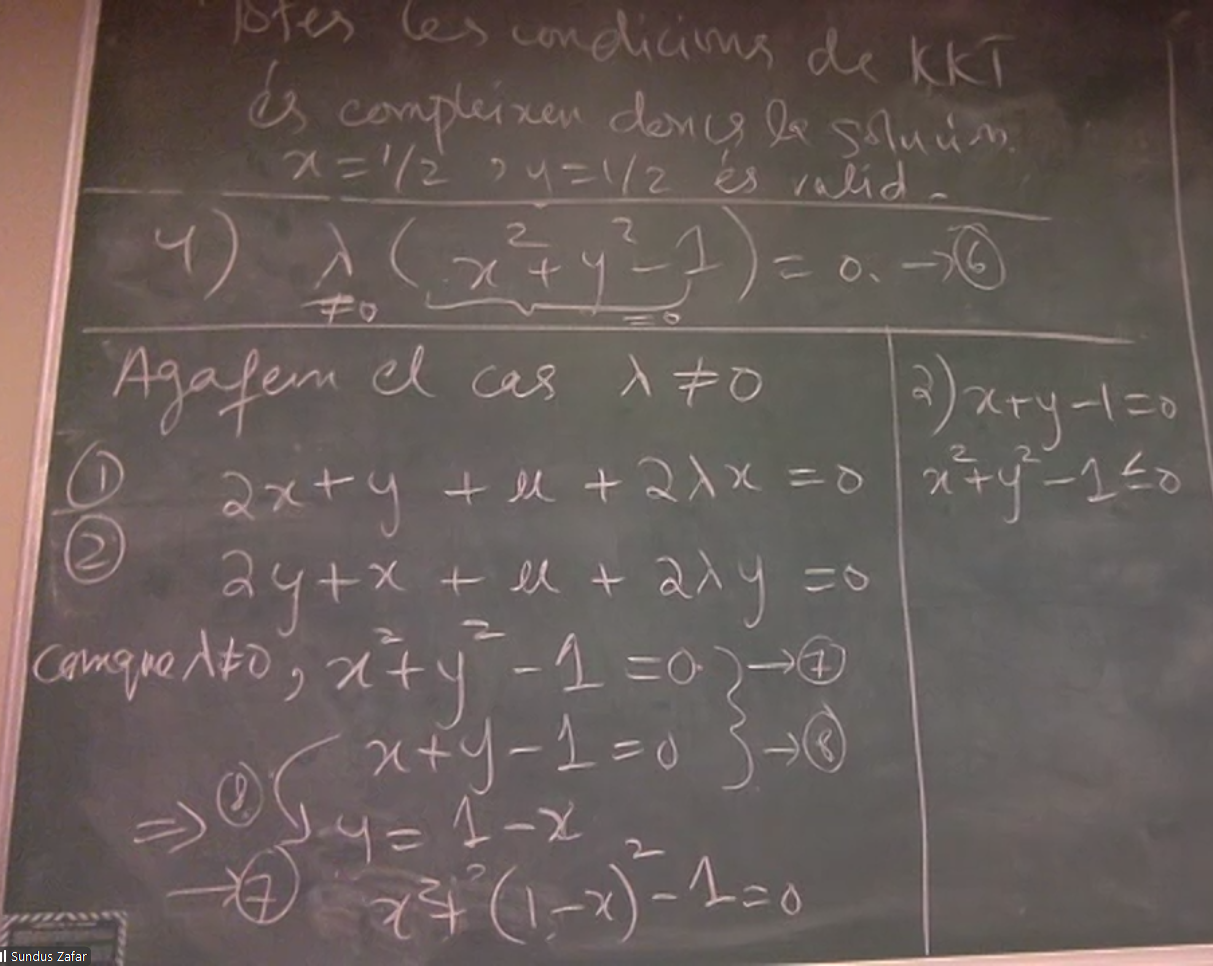 Totes les condicions de KKT
és compleixen doncs la solución.
x = 1/2 , y = 1/2 és valid.
4) λ (x² + y² - 1) = 0. → ⑥
≠0 =0
Agafem el cas λ ≠ 0
① 2x + y + μ + 2λx = 0
② 2y + x + μ + 2λy = 0
comque λ≠0, x² + y² - 1 = 0. } → ⑦
x + y - 1 = 0 } → ⑧
⇒ ⑧ y = 1 - x
→ ⑦ x² + (1 - x)² - 1 = 0
2) x + y - 1 = 0
x² + y² - 1 ≤ 0
Sundus Zafar